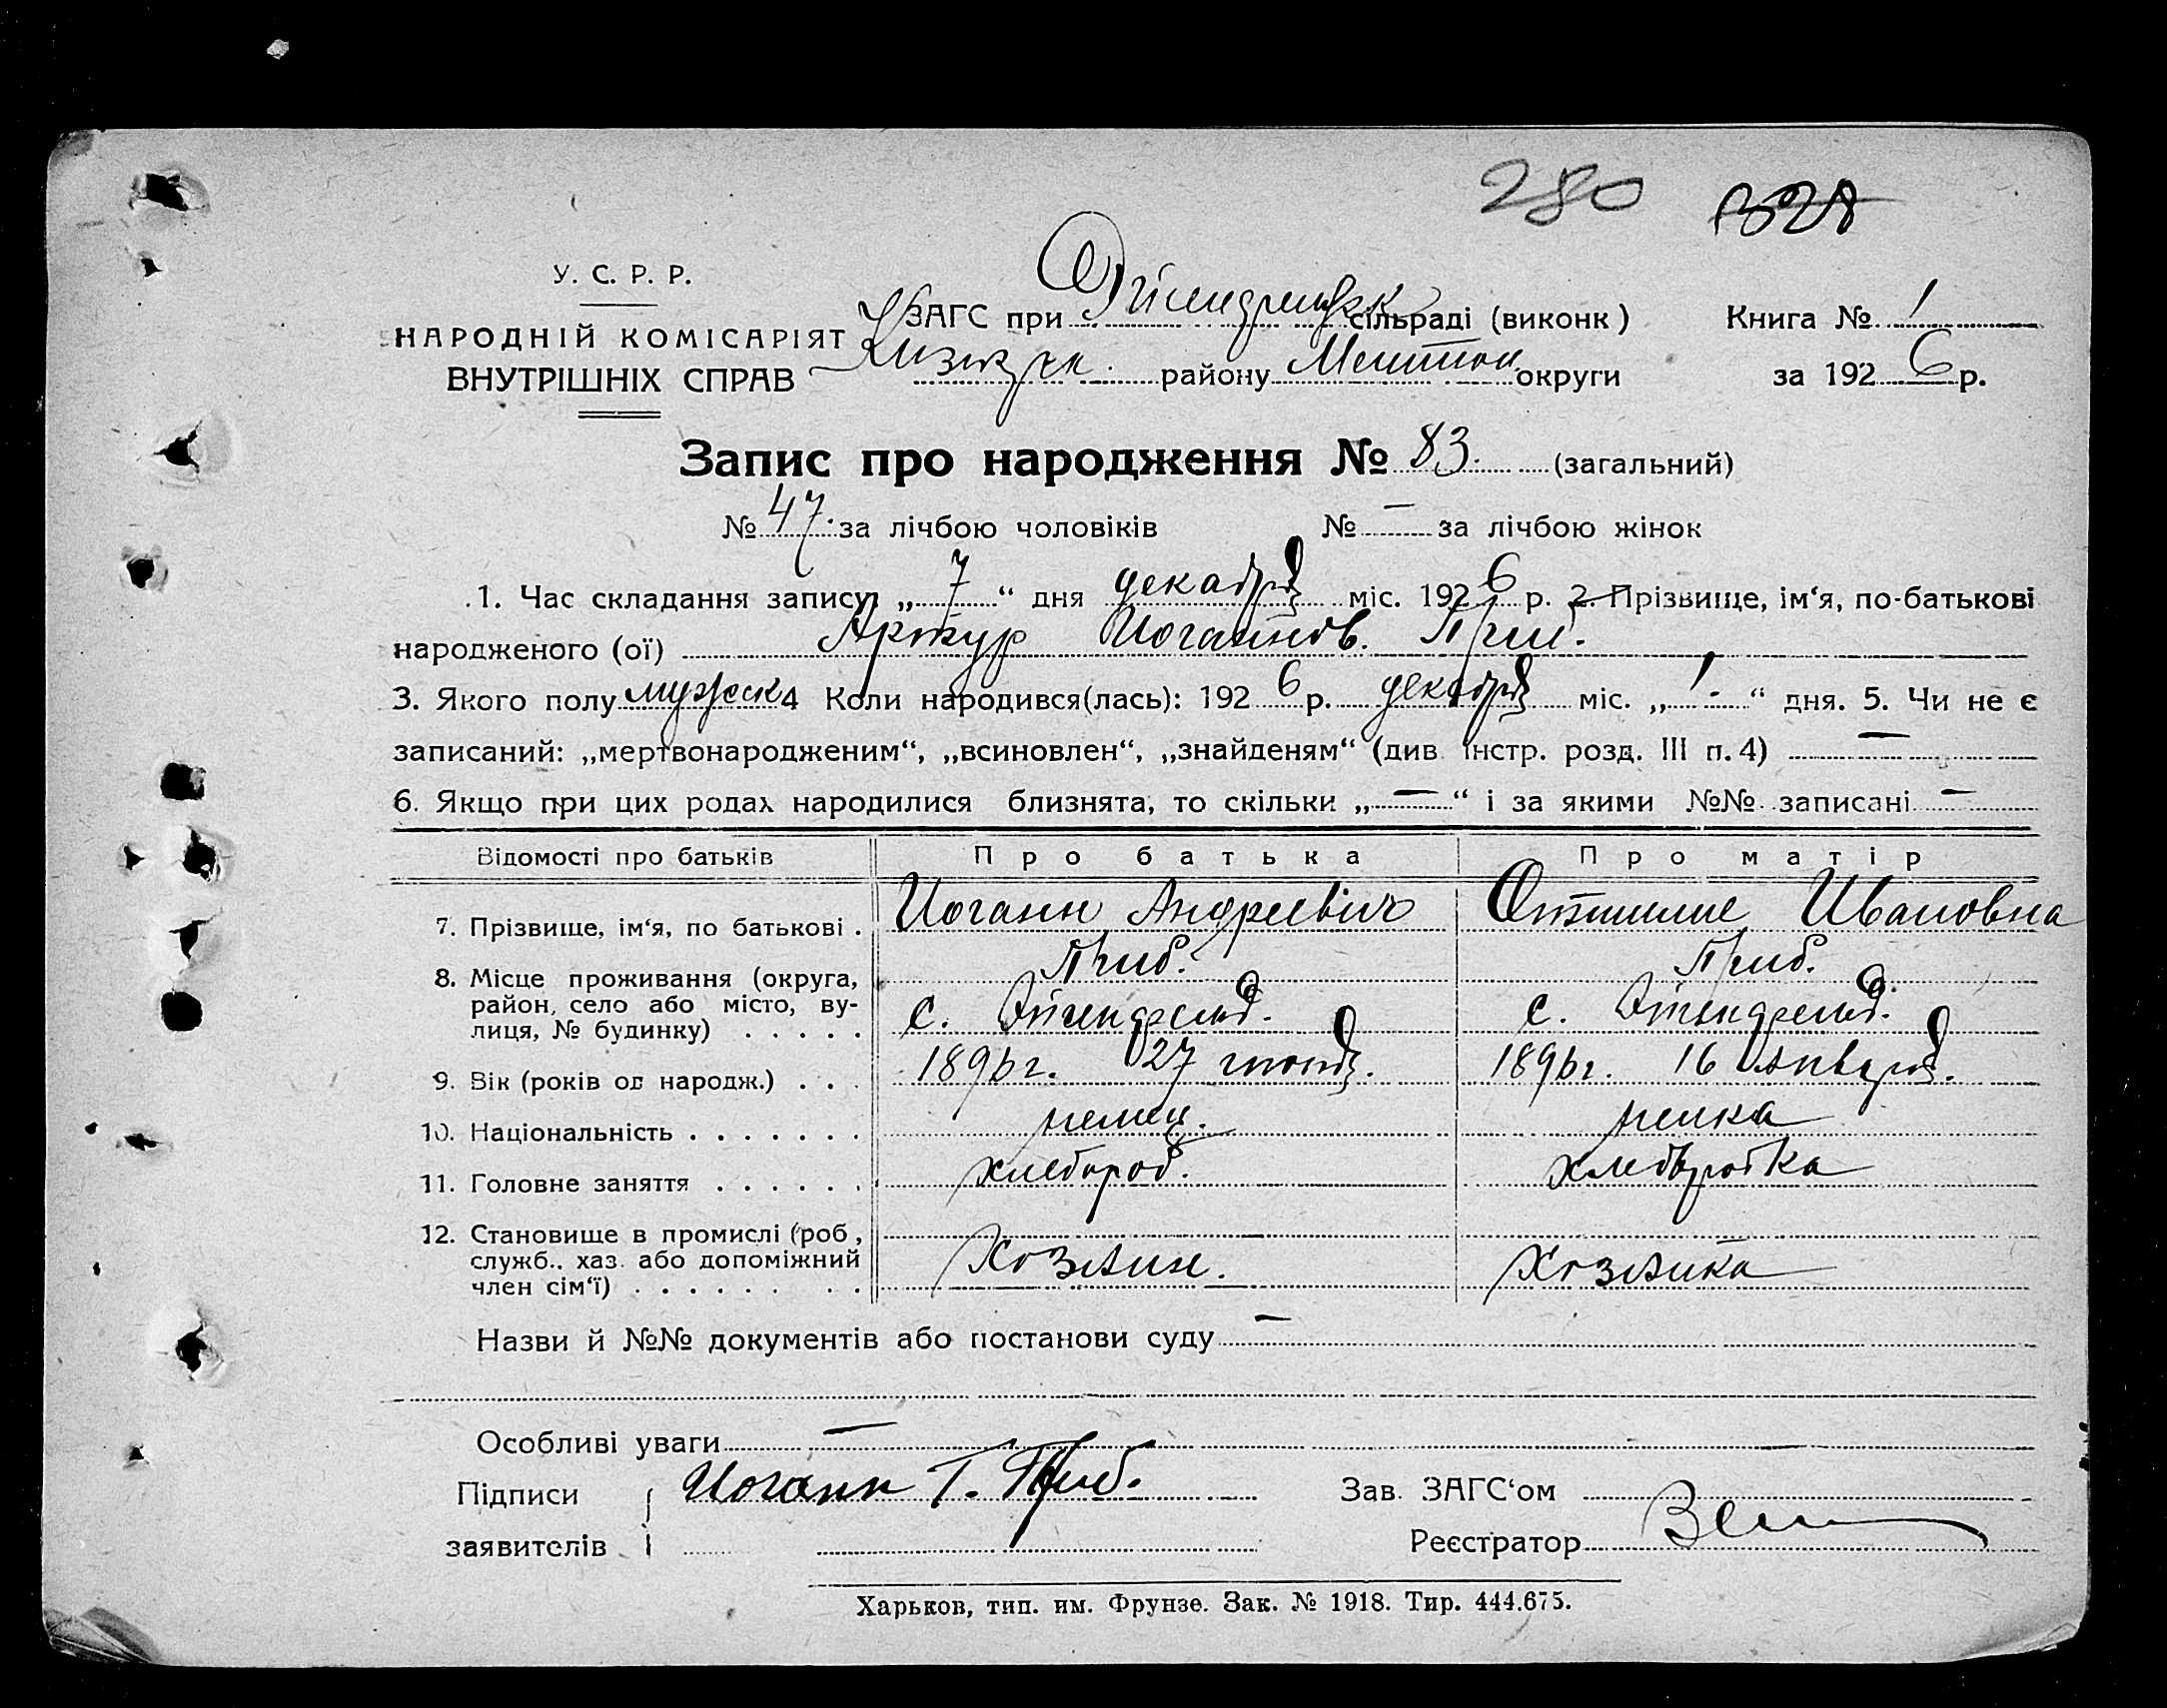 280 328
У. С. Р. Р.
НАРОДНІЙ КОМІСАРІЯТ
ВНУТРІШНІХ СПРАВ
ЗАГС при сільраді (виконк) Книга № 1
району Мелітоп округи за 1926 р.
Запис про народження № 83. (загальний)
№ 47. за лічбою чоловіків № — за лічбою жінок
1. Час складання запису „ 7 “ дня декабря міс. 1926 р. 2. Прізвище, ім‘я, по-батькові
народженого (ої) Артур Иоганнов.
3. Якого полу мужск 4 Коли народився(лась): 1926 р. декабря міс. „ 1. “ дня. 5. Чи не є
записаний: „мертвонародженим“, „всиновлен“, „знайденям“ (див. інстр. розд. III п. 4) —
6. Якщо при цих родах народилися близнята, то скільки „ — “ і за якими №№ записані —
Відомості про батьків Про батька Про матір
7. Прізвище, ім‘я, по батькові . Иоганн Андреевич Оттилие Ивановна
8. Місце проживання (округа,
район, село або місто, ву-
лиця, № будинку) . . . . . с. Эйгенфельд. с. Эйгенфельд.
9. Вік (років од народж.) . . . 1896 г. 27 1896 г. 16 января.
10. Національність . . . . . . . немец. немка
11. Головне заняття . . . . . . хлебороб. хлеборобка
12. Становище в промислі (роб.,
служб., хаз. або допоміжний
член сім‘ї) . . . . . . . . Хозяин. Хозяйка
Назви й №№ документів або постанови суду —
Особливі уваги —
Підписи Иоганн
Зав. ЗАГС‘ом
заявителів Реєстратор
Харьков, тип. им. Фрунзе. Зак. № 1918. Тир. 444.675.